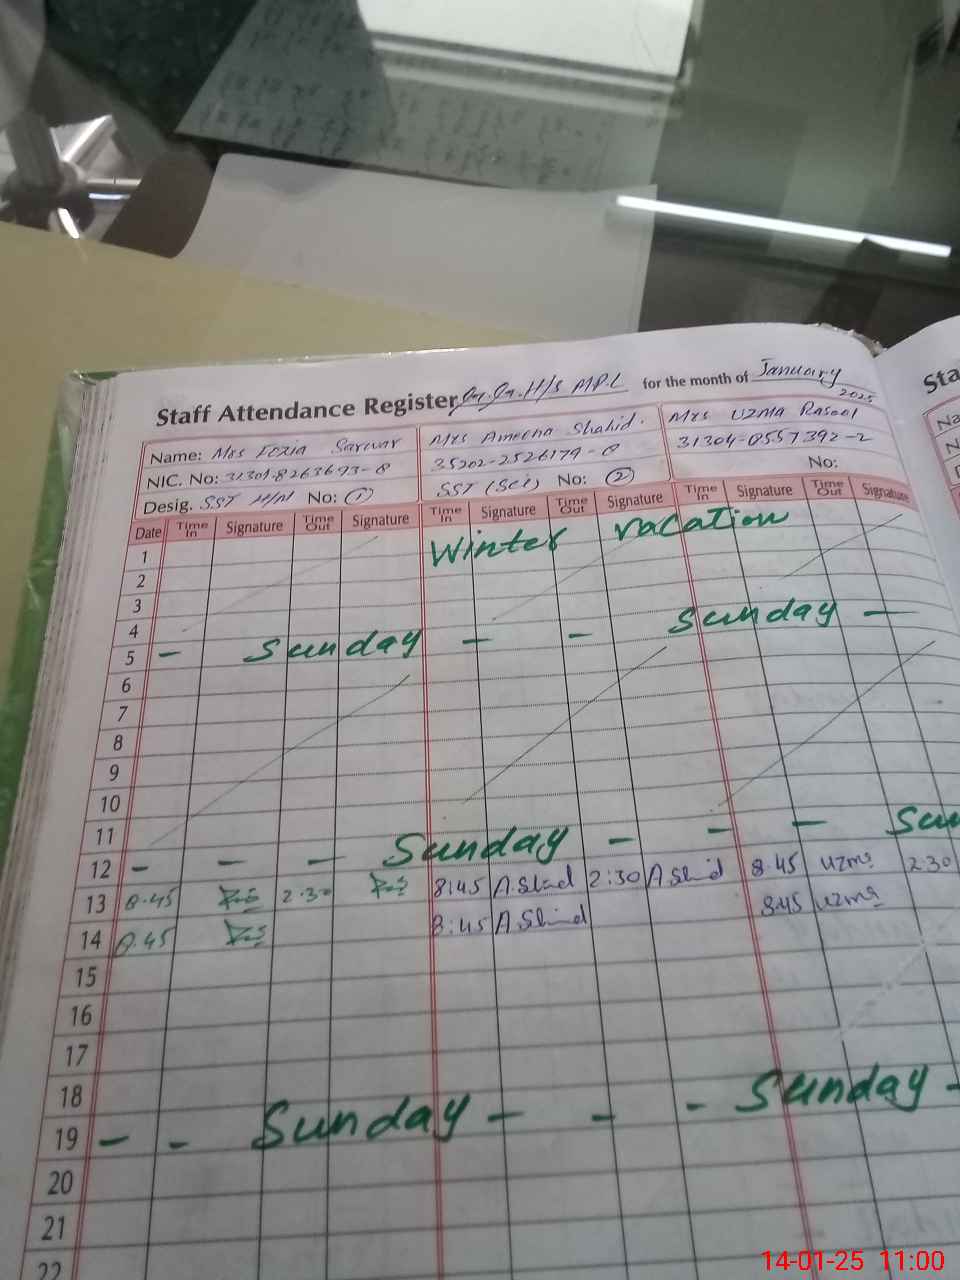 Staff Attendance Register Gr. Gr. H/S MPL for the month of January 2025
Name: Mrs Fozia Sarwar Mrs Ameena Shahid. Mrs UZMA Rasool
NIC. No: 31301-8263693-8 35202-2526179-0 31304-0557392-2
Desig. SST H/M No: 1 SST (Sci) No: 2 No:
Date Time In Signature Time Out Signature Time In Signature Time Out Signature Time In Signature Time Out Signature
1 Winter vacation
2
3
4
5 - Sunday - - Sunday -
6
7
8
9
10
11
12 - - - Sunday - - - Sun
13 8.45 2.30 8:45 A.Shid 2:30 A Shid 8.45 uzma 2.30
14 8.45 8:45 A Shid 8.45 uzma
15
16
17
18
19 - - Sunday - - - Sunday -
20
21
22
Sta
Na
N
14-01-25 11:00